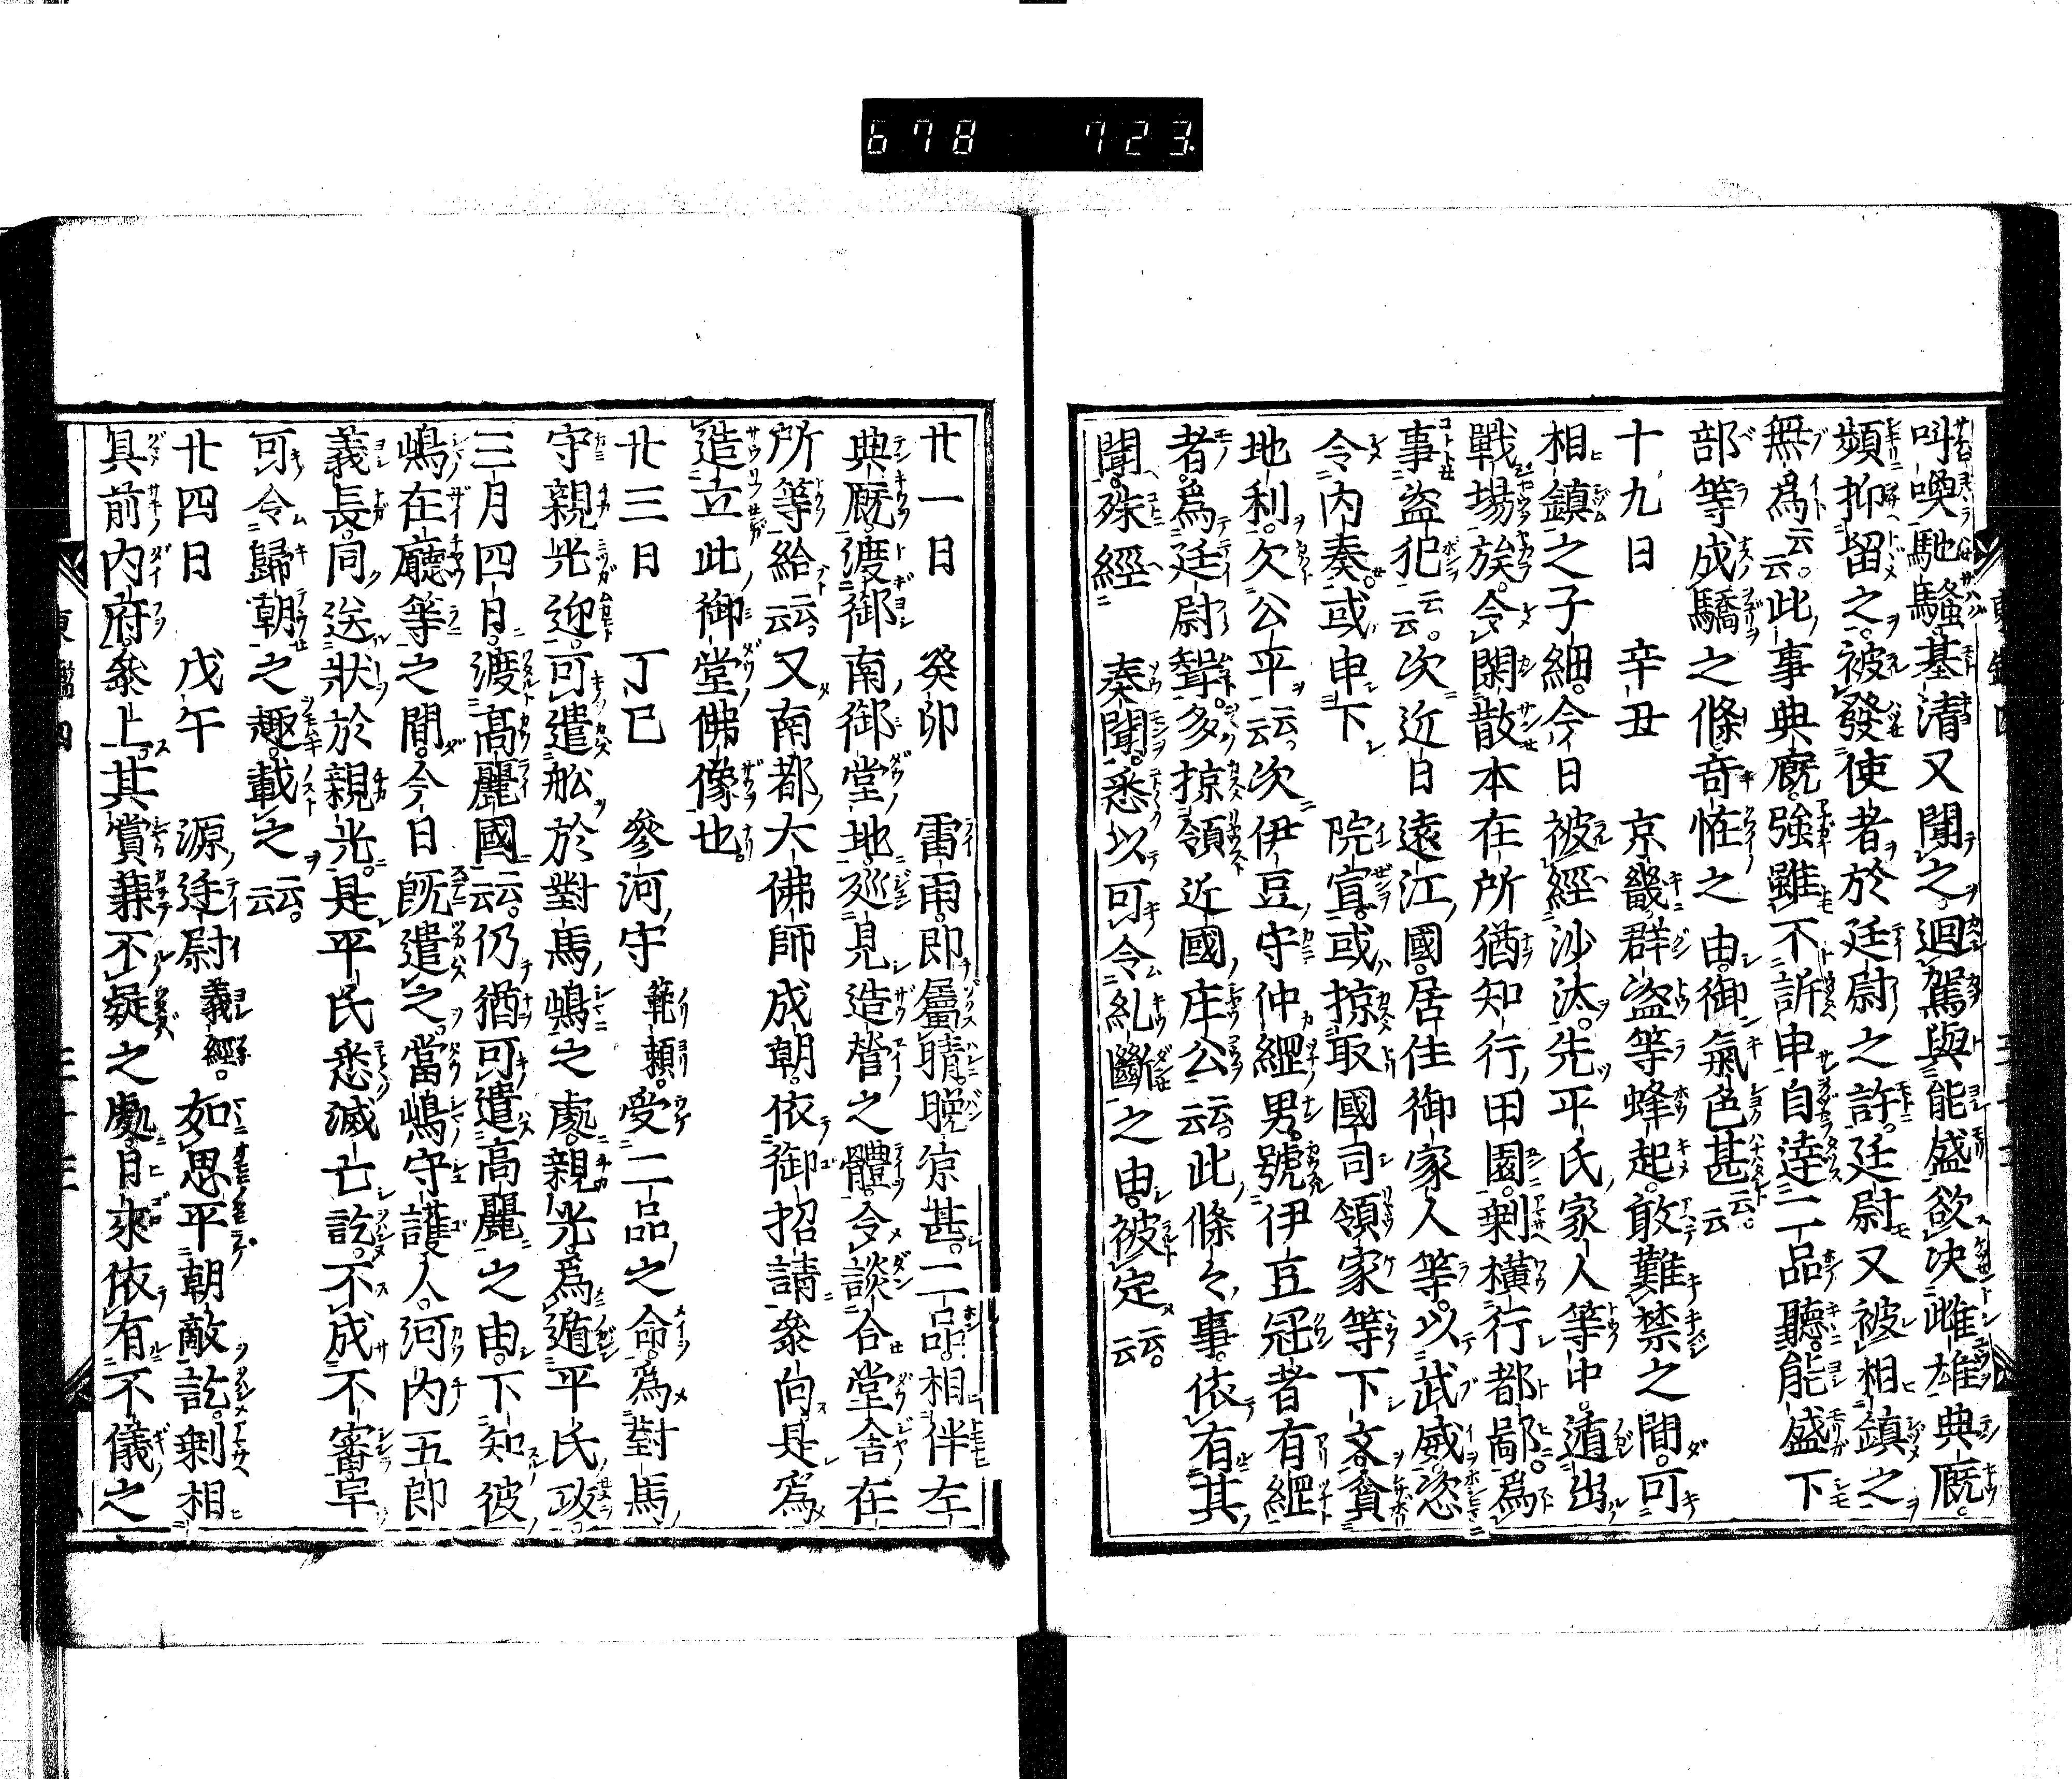 678 723.
叫喚馳騷。基清又聞之。迴駕與能盛欲决雌雄。典厩
頻抑留之。被發使者於廷尉之許。廷尉又被相鎮之
無爲云云。此事典厩。強雖不訴申。自達二品聽。能盛下
部等成驕之條。奇恠之由。御氣色甚云云。
十九日 辛丑 京畿群盜等蜂起。敢難禁之間。可
相鎮之子細。今日被經沙汰。先平氏家人等中。遁出
戰場族。令閑散本在所猶知行田園。剰横行都鄙。爲
事盜犯云云。次近日遠江國。居住御家人等。以武威。恣
令内奏。或申下 院宣。或掠取國司領家等下文。貪
地利。欠公平云云。次伊豆守仲綱男。號伊豆冠者有綱
者。爲廷尉聟。多掠領近國庄公云云。此條々事。依有其
聞。殊經 奏聞。悉以可令糺斷之由。被定云云。
廿一日 癸卯 雷雨。即屬晴。晩凉甚。二品相伴左
典厩。渡御南御堂地。巡見造營之體。令談合堂舍在
所等給云云。又南都大佛師成朝。依御招請參向。是爲
造立此御堂佛像也。
廿三日 丁巳 參河守範頼。受二品之命。爲對馬
守親光迎。可遣舩於對馬嶋之處。親光。爲遁平氏攻。
三月四日。渡高麗國云云。仍猶可遣高麗之由。下知彼
嶋在廳等之間。今日既遣之。當嶋守護人。河内五郎
義長。同送狀於親光。是平氏悉滅亡訖。不成不審。早
可令歸朝之趣。載之云云。
廿四日 戊午 源廷尉義經。如思平朝敵訖。剰相
具前内府。參上。其賞兼不疑之處。日來依有不儀之